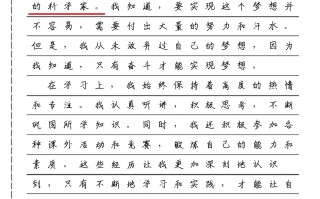 的科学家。我知道，要实现这个梦想并
不容易，需要付出大量的努力和汗水。
但是，我从未放弃过自己的梦想，因为
我知道，只有奋斗才能实现梦想。
在学习上，我始终保持着高度的热情
和专注。我认真听讲，积极思考，不断
巩固所学知识。同时，我还积极参加各
种课外活动和竞赛，锻炼自己的能力和
素质。这些经历让我更加深刻地认识
到，只有不断地学习和实践，才能让自